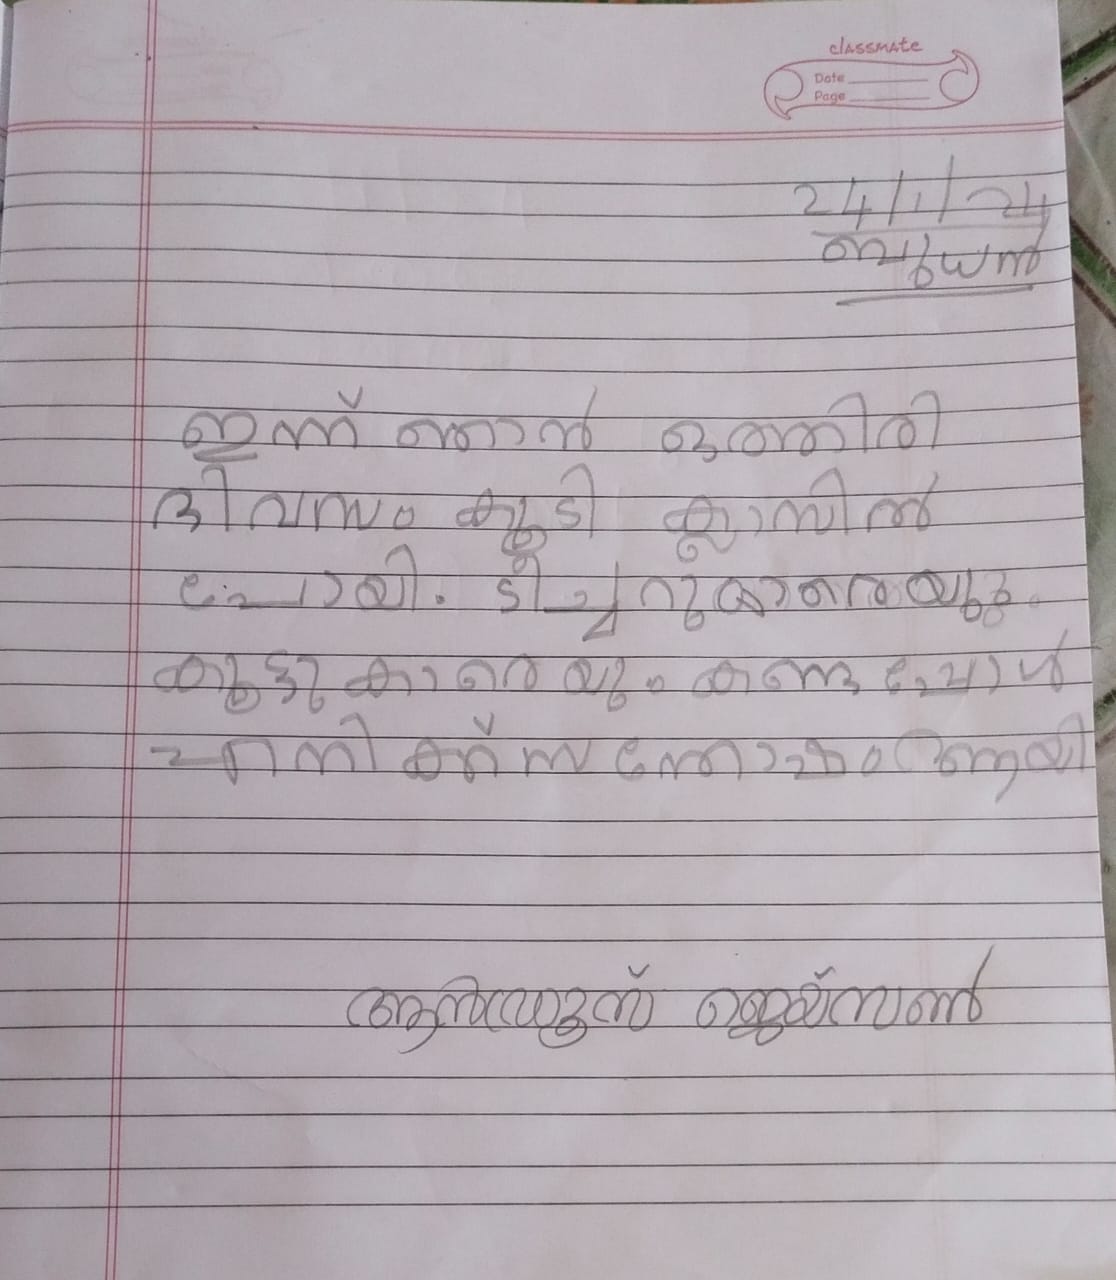 classmate
Date
Page
24/1/24
ബുധൻ
ഇന്ന് ഞാൻ ഒത്തിരി
ദിവസം കൂടി ക്ലാസിൽ
പോയി. ടീച്ചറുമാരെയും
കൂട്ടുകാരെയും കണ്ടപ്പോൾ
എനിക്ക് സന്തോഷം ആയി
ആൻഡ്രൂസ് ജെയ്സൺ